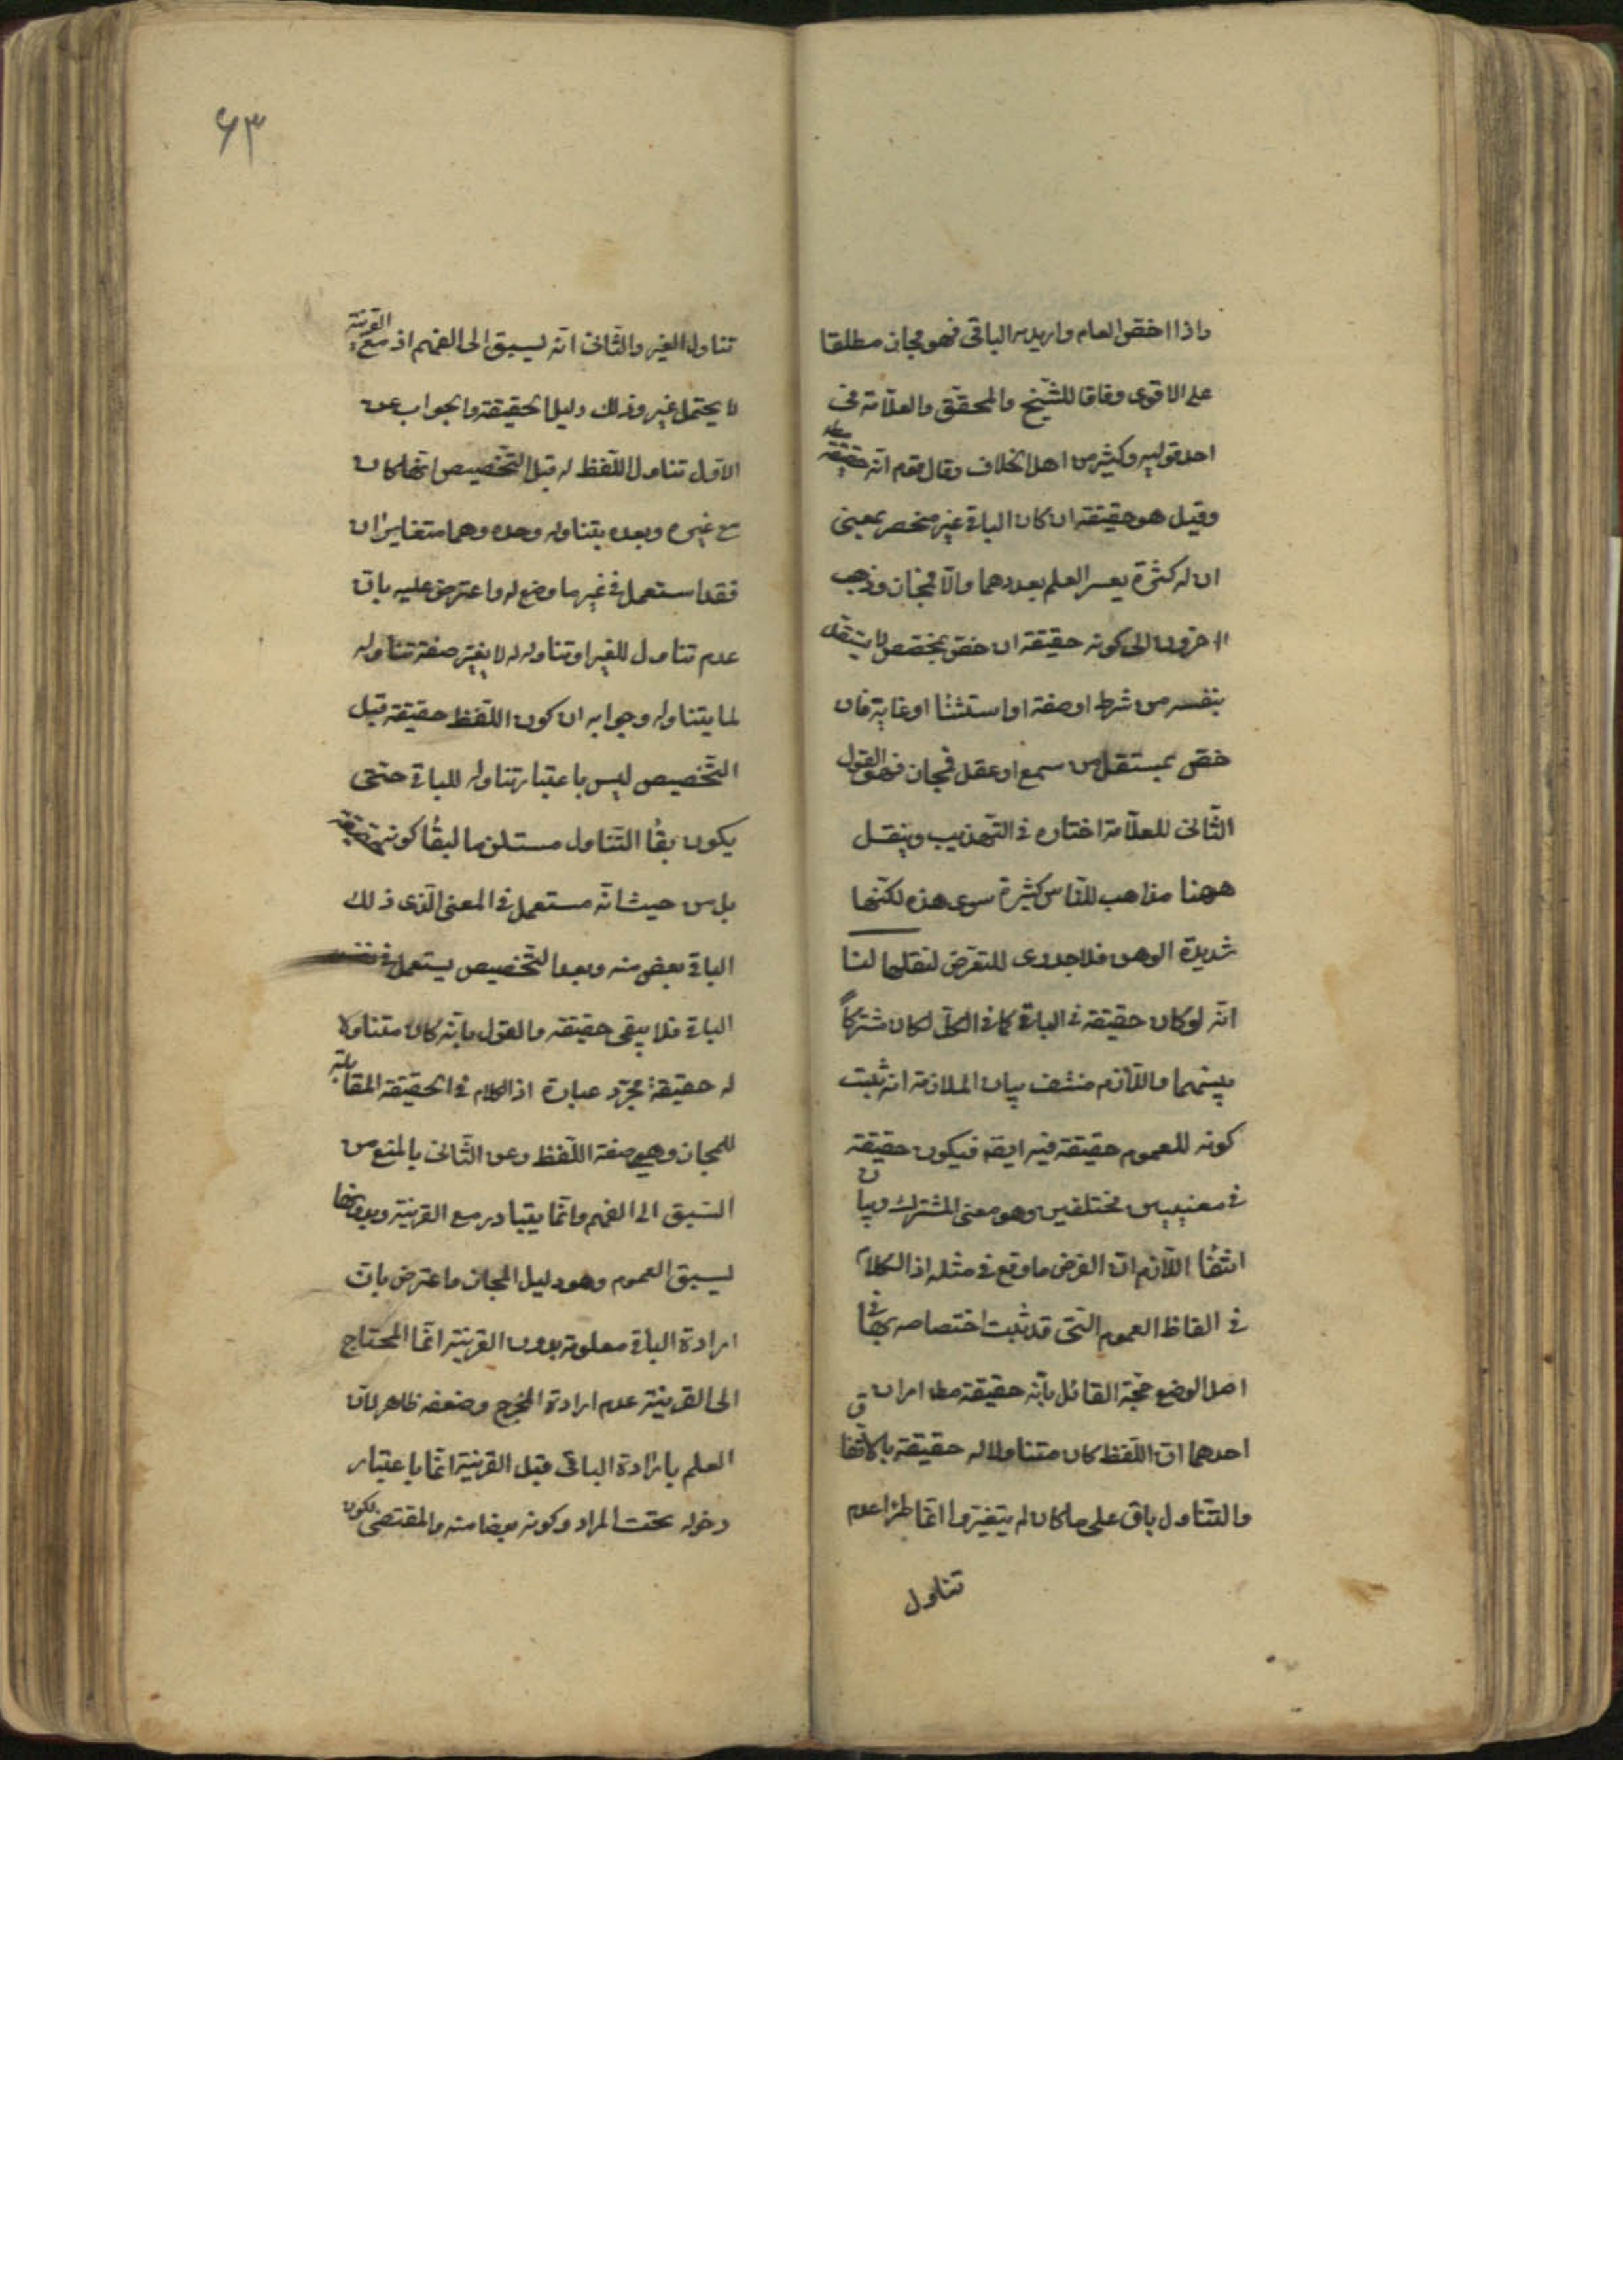 واذا اخقص العام واريد به الباقى فهو مجاز مطلقا
على الاقوى وفاقا للشيخ والمحقق والعلامة فى
احد قوليه وكثير من اهل الخلاف وقال قوم انه حقيقة مطلقا
وقيل هو حقيقة ان كان الباقى غير منحصر بمعنى
ان له كثرة يعسر العلم بعددها والا فمجاز وذهب
اخرون الى كونه حقيقة ان خص بمخصص لا يستقل
بنفسه من شرط او صفة او استثناء او غاية فان
خص بمستقل من سمع او عقل فمجاز وهو القول
الثانى للعلامة اختاره فى التهذيب وينقل
ههنا مذاهب للناس كثيرة سوى هذه لكنها
شديدة الوهن فلا جدوى للتعرض لنقلها لنا
انه لو كان حقيقة فى الباقى كما فى الكل لكان مشتركاً
بينهما واللازم منتف بيان الملازمة انه ثبت
كونه للعموم حقيقة فيه ايضا فيكون حقيقة
فى معنيين مختلفين وهو معنى المشترك وبيان
انتفاء اللازم ان الفرض ما وقع فى مثله اذ الكلام
فى الفاظ العموم التى قد ثبت اختصاصه بها فى
اصل الوضع حجة القائل بانه حقيقة مطا امران
احدهما ان اللفظ كان متناولا له حقيقة بالاتفاق
والتناول باق على ما كان لم يتغير وانما طرأ عدم
تناول
٦٣
تناول الغير والثانى انه يسبق الى الفهم اذ مع القرينة
لا يحتمل غيره وذلك دليل الحقيقة والجواب عن
الاول تناول اللفظ له قبل التخصيص انما كان
مع غيره وبعده يتناوله وحده وهما متغايران
فقد استعمل فى غير ما وضع له واعترض عليه بان
عدم تناول للغير او تناوله له لا يغير صفة تناوله
لما يتناوله وجوابه ان كون اللفظ حقيقة قبل
التخصيص ليس باعتبار تناوله للباقى حتى
يكون بقاء التناول مستلزما لبقاء كونه حقيقة
بل من حيث انه مستعمل فى المعنى الذى ذلك
الباقى بعض منه وبعد التخصيص يستعمل فى نفس
الباقى فلا يبقى حقيقة والقول بانه كان متناولا
له حقيقة مجرد عبارة اذ الكلام فى الحقيقة المقابلة
للمجاز وهى صفة اللفظ وعن الثانى بالمنع من
السبق الى الفهم وانما يتبادر مع القرينة وبدونها
يسبق العموم وهو دليل المجاز واعترض بان
ارادة الباقى معلومة بدون القرينة انما المحتاج
الى القرينة عدم ارادة المخرج وضعفه ظاهر لان
العلم بارادة الباقى قبل القرينة انما باعتبار
دخوله تحت المراد وكونه بعضا منه والمقتضى لكون